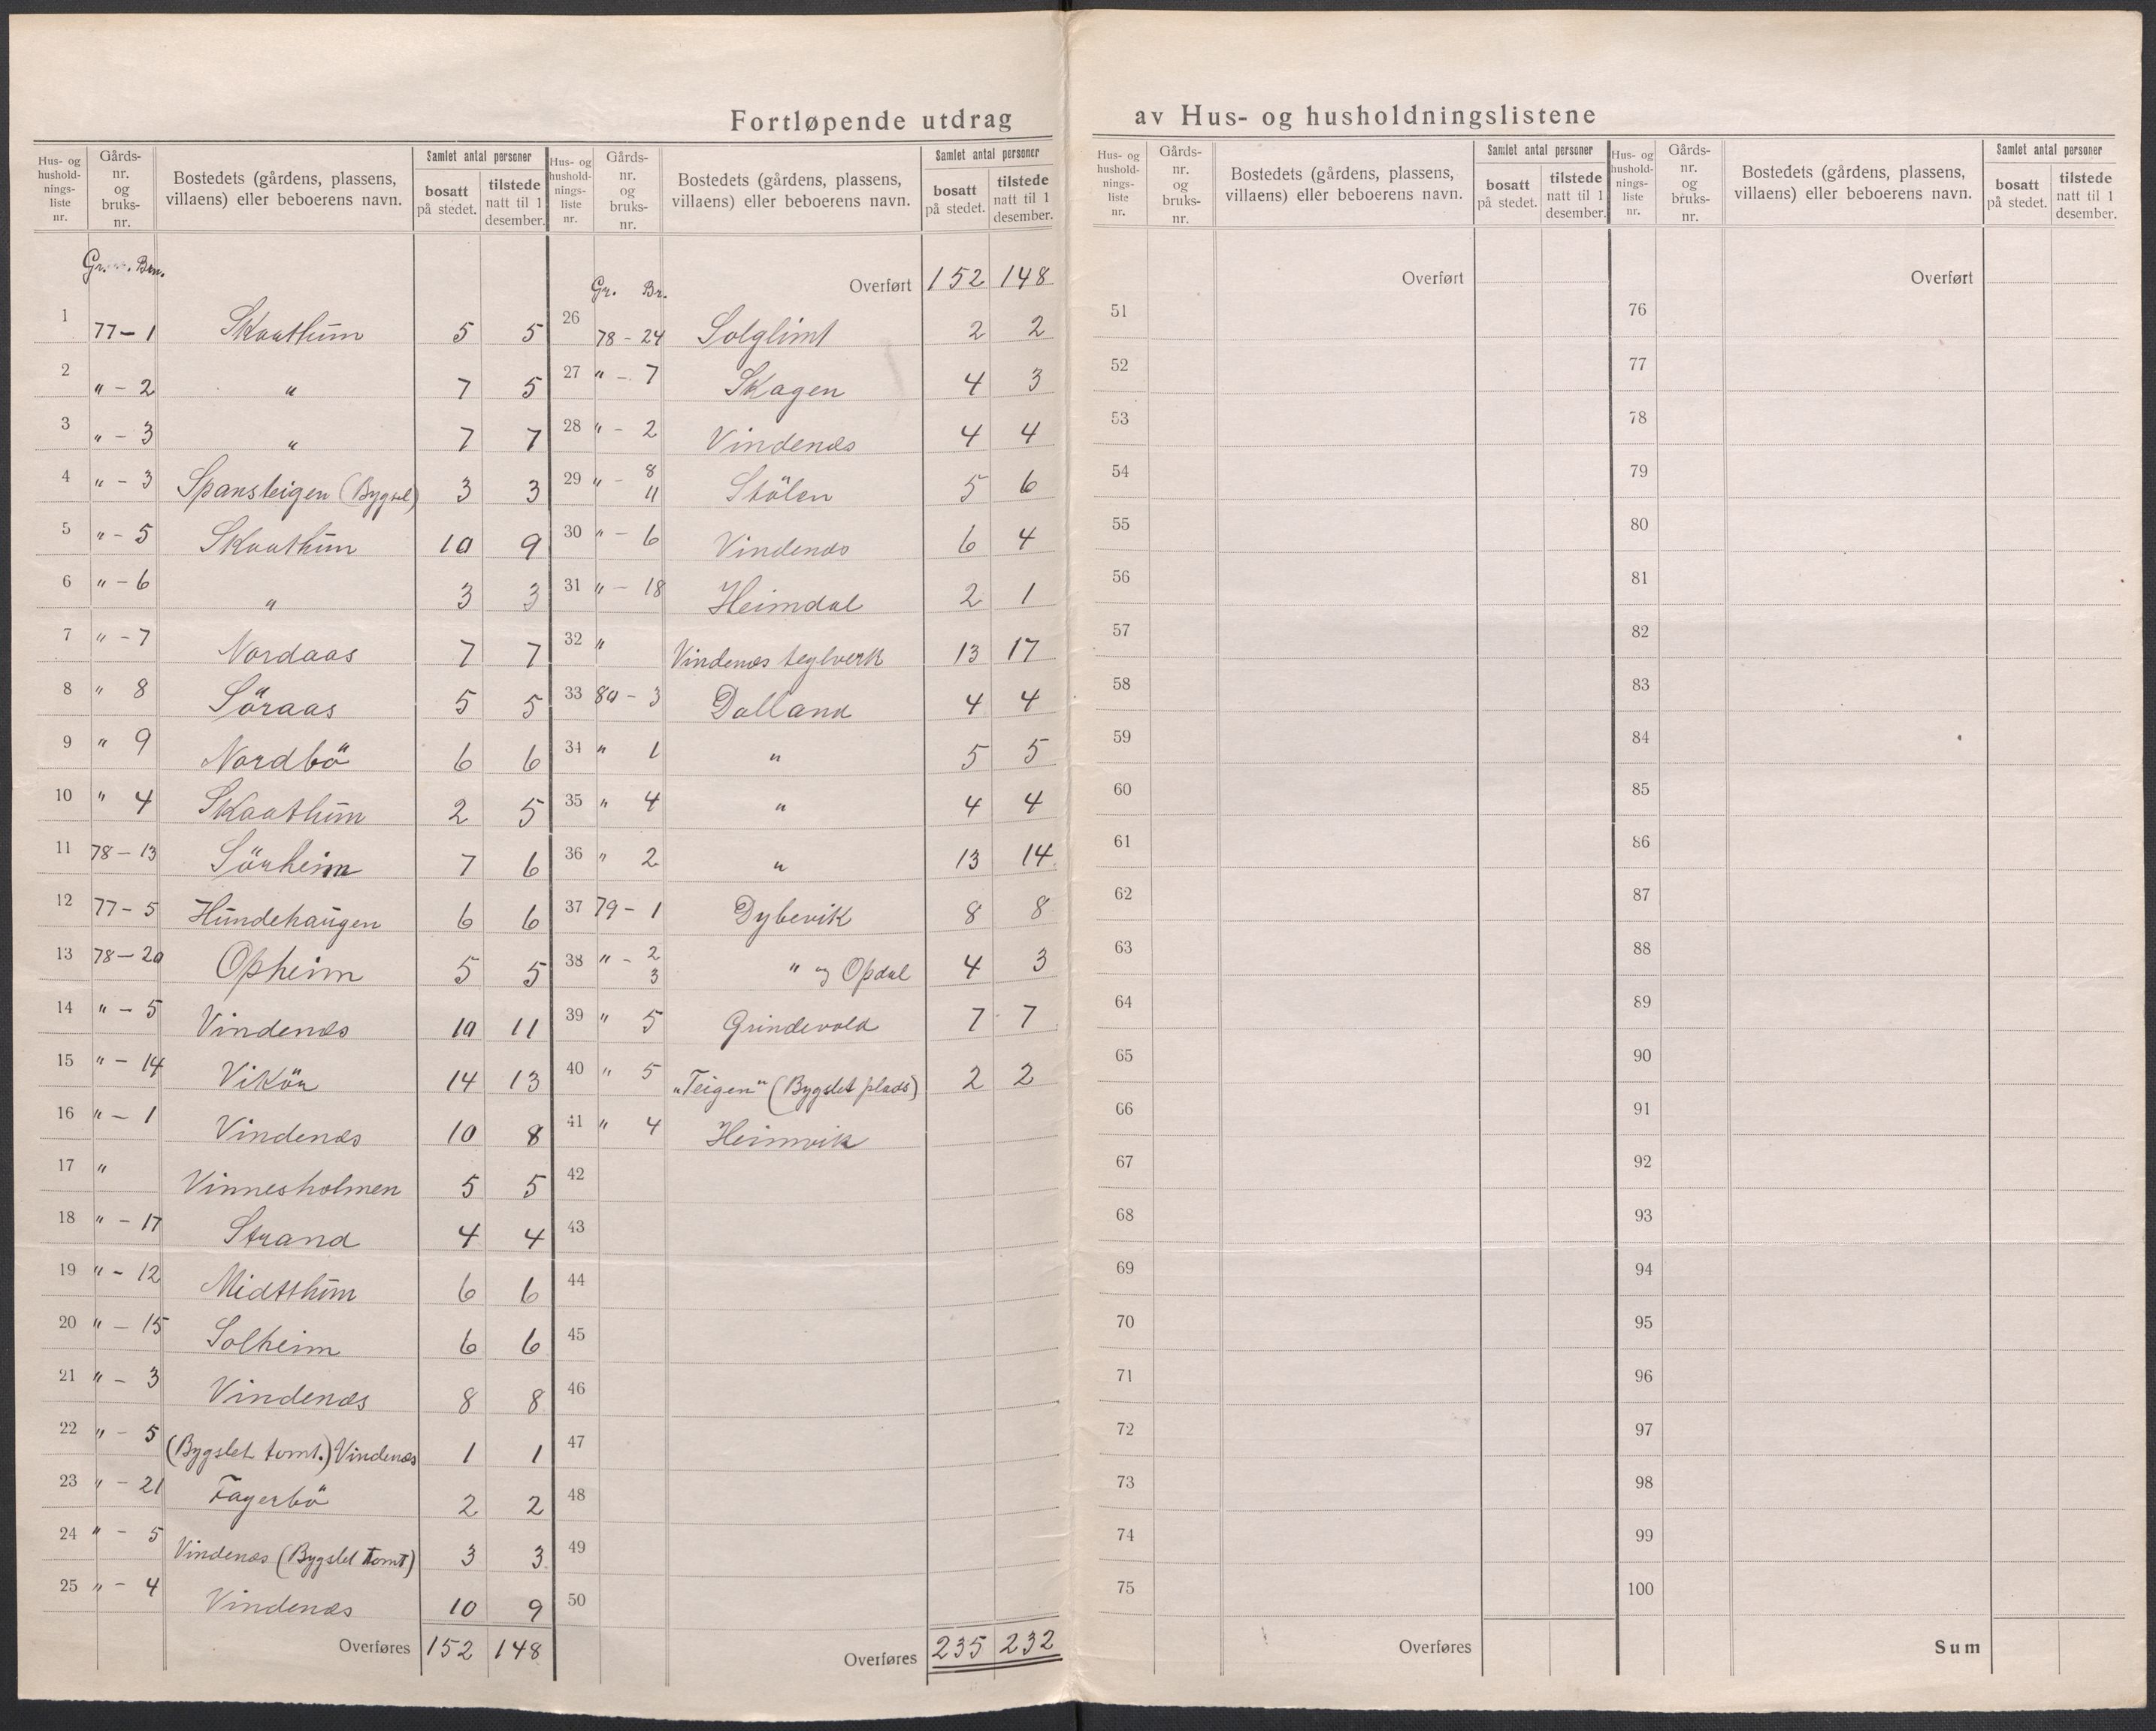 Fortløpende utdrag av Hus- og husholdningslistene
Hus- og hushold- nings- liste nr. | Gårds- nr. og bruks- nr. | Bostedets (gårdens, plassens, villaens) eller beboerens navn. | Samlet antal personer | bosatt på stedet. | tilstede natt til 1 desember.
Gr. Brn.
1 77-1 Skaathun 5 5
2 " - 2 " 7 5
3 " - 3 " 7 7
4 " - 3 Spansteigen (Bygsel) 3 3
5 " - 5 Skaathun 10 9
6 " - 6 " 3 3
7 " - 7 Nordaas 7 7
8 " 8 Söraas 5 5
9 " 9 Nordbö 6 6
10 " 4 Skaathun 2 5
11 78-13 Sörheim 7 6
12 77-5 Hundehaugen 6 6
13 78-20 Opheim 5 5
14 " - 5 Vindenes 10 11
15 " - 14 Vikör 14 13
16 " - 1 Vindenes 10 8
17 " Vinnesholmen 5 5
18 " - 17 Strand 4 4
19 " - 12 Midtthun 6 6
20 " - 15 Solheim 6 6
21 " - 3 Vindenes 8 8
22 " - 5 (Bygslet tomt.) Vindenes 1 1
23 " - 21 Fagerbö 2 2
24 " - 5 Vindenes (Bygslet tomt) 3 3
25 " - 4 Vindenes 10 9
Overføres 152 148
Hus- og hushold- nings- liste nr. | Gårds- nr. og bruks- nr. | Bostedets (gårdens, plassens, villaens) eller beboerens navn. | Samlet antal personer | bosatt på stedet. | tilstede natt til 1 desember.
Gr. Br. Overført 152 148
26 78-24 Solglimt 2 2
27 " - 7 Skagen 4 3
28 " - 2 Vindenes 4 4
29 " - 8 11 Stölen 5 6
30 " - 6 Vindenes 6 4
31 " - 18 Heimdal 2 1
32 " Vindenes teglverk 13 17
33 80-3 Dalland 4 4
34 " 1 " 5 5
35 " 4 " 4 4
36 " 2 " 13 14
37 79-1 Dybevik 8 8
38 " - 2 3 " og Opdal 4 3
39 " 5 Grindevold 7 7
40 " 5 "Teigen" (Bygslet plads) 2 2
41 " 4 Heimvik
42
43
44
45
46
47
48
49
50
Overføres 235 232
Hus- og hushold- nings- liste nr. | Gårds- nr. og bruks- nr. | Bostedets (gårdens, plassens, villaens) eller beboerens navn. | Samlet antal personer | bosatt på stedet. | tilstede natt til 1 desember.
Overført
51
52
53
54
55
56
57
58
59
60
61
62
63
64
65
66
67
68
69
70
71
72
73
74
75
Overføres
Hus- og hushold- nings- liste nr. | Gårds- nr. og bruks- nr. | Bostedets (gårdens, plassens, villaens) eller beboerens navn. | Samlet antal personer | bosatt på stedet. | tilstede natt til 1 desember.
Overført
76
77
78
79
80
81
82
83
84
85
86
87
88
89
90
91
92
93
94
95
96
97
98
99
100
Sum